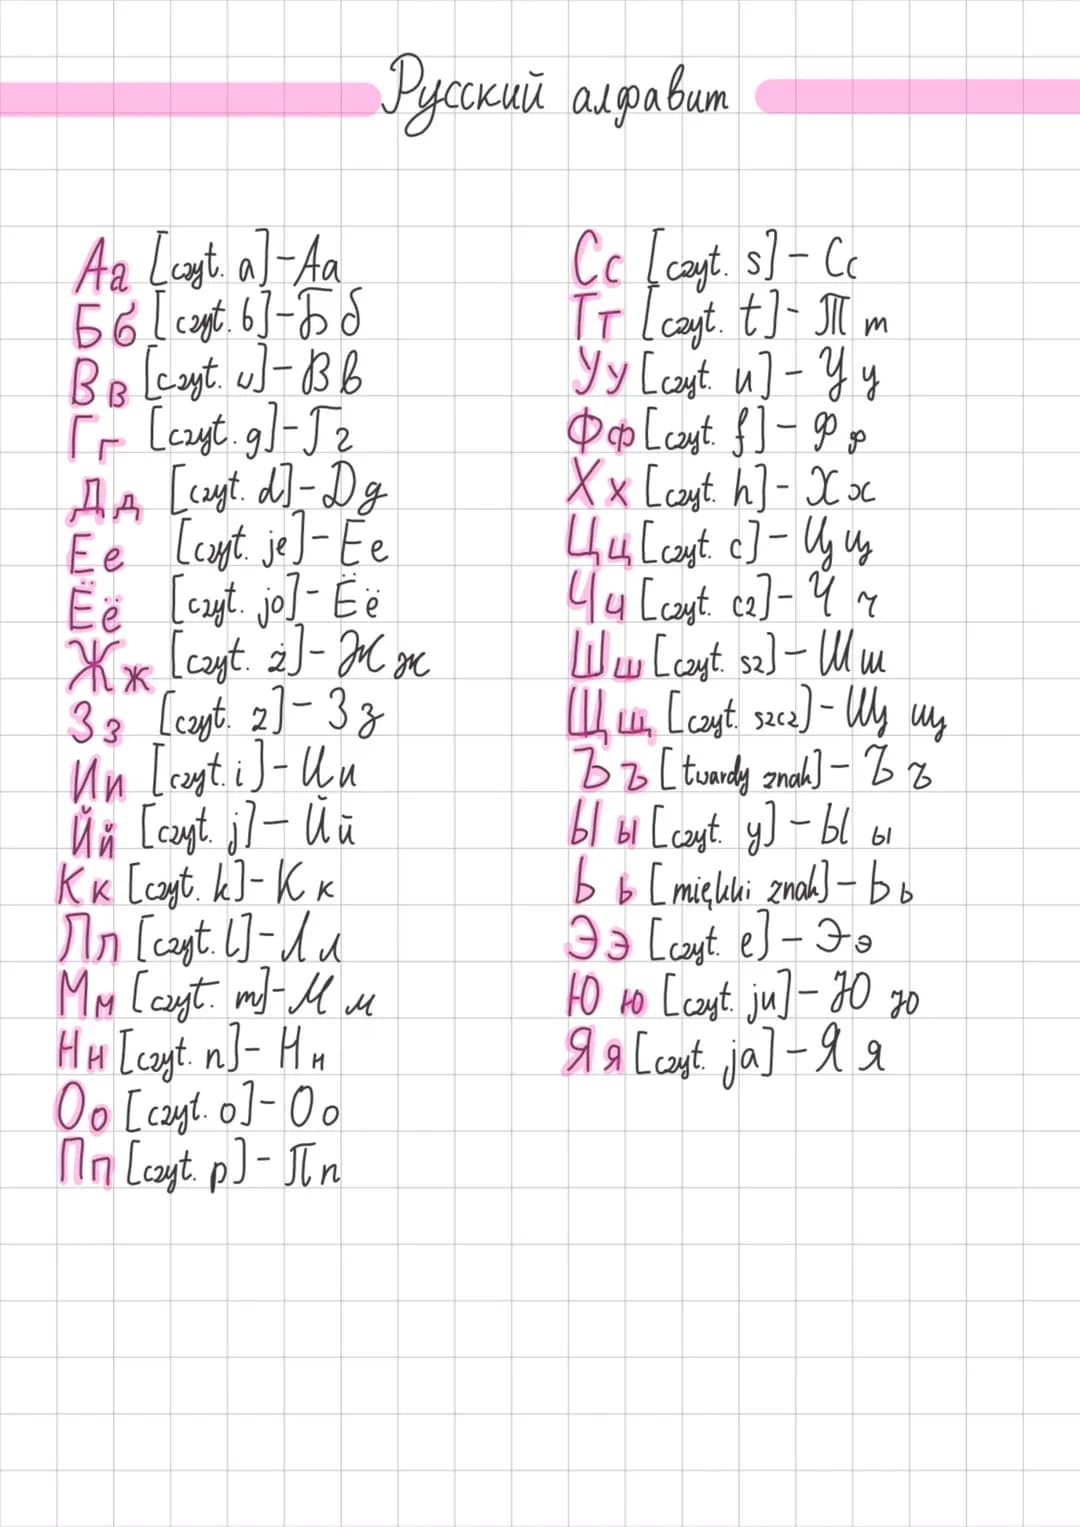 Русский алфавит
Аа [czyt. a]-Аа
Бб [czyt. b]-Бб
Вв [czyt. w]-Вв
Гг [czyt. g]-Гг
Дд [czyt. d]-Дд
Ее [czyt. je]-Ее
Ёё [czyt. jo]-Ёё
Жж [czyt. ż]-Жж
Зз [czyt. z]-Зз
Ии [czyt. i]-Ии
Йй [czyt. j]-Йй
Кк [czyt. k]-Кк
Лл [czyt. l]-Лл
Мм [czyt. m]-Мм
Нн [czyt. n]-Нн
Оо [czyt. o]-Оо
Пп [czyt. p]-Пп
Сс [czyt. s]-Сс
Тт [czyt. t]-Тт
Уу [czyt. u]-Уу
Фф [czyt. f]-Фф
Хх [czyt. h]-Хх
Цц [czyt. c]-Цц
Чч [czyt. cz]-Чч
Шш [czyt. sz]-Шш
Щщ [czyt. szcz]-Щщ
Ъъ [twardy znak]-Ъъ
Ыы [czyt. y]-Ыы
Ьь [miękki znak]-Ьь
Ээ [czyt. e]-Ээ
Юю [czyt. ju]-Юю
Яя [czyt. ja]-Яя